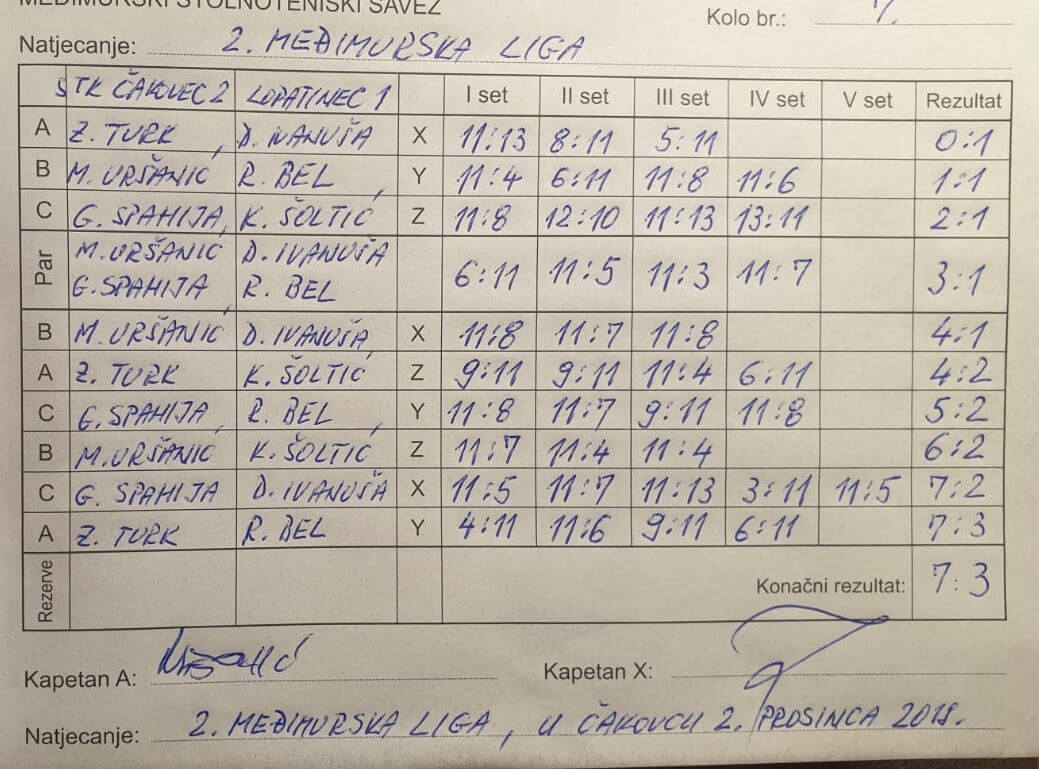 MEĐIMURSKI STOLNOTENISKI SAVEZ
Kolo br.: 7.
Natjecanje: 2. MEĐIMURSKA LIGA
STK ČAKOVEC 2 LOPATINEC 1 I set II set III set IV set V set Rezultat
A Z. TURK, D. IVANUŠA X 11:13 8:11 5:11 0:1
B M. URŠANIĆ R. BEL, Y 11:4 6:11 11:8 11:6 1:1
C G. SPAHIJA, K. ŠOLTIĆ Z 11:8 12:10 11:13 13:11 2:1
Par M. URŠANIĆ D. IVANUŠA
G. SPAHIJA, R. BEL 6:11 11:5 11:3 11:7 3:1
B M. URŠANIĆ D. IVANUŠA, X 11:8 11:7 11:8 4:1
A Z. TURK K. ŠOLTIĆ Z 9:11 9:11 11:4 6:11 4:2
C G. SPAHIJA, R. BEL, Y 11:8 11:7 9:11 11:8 5:2
B M. URŠANIĆ K. ŠOLTIĆ Z 11:7 11:4 11:4 6:2
C G. SPAHIJA D. IVANUŠA X 11:5 11:7 11:13 3:11 11:5 7:2
A Z. TURK R. BEL Y 4:11 11:6 9:11 6:11 7:3
Rezerve Konačni rezultat: 7:3
Kapetan A: Kapetan X:
Natjecanje: 2. MEĐIMURSKA LIGA, U ČAKOVCU 2. PROSINCA 2018.